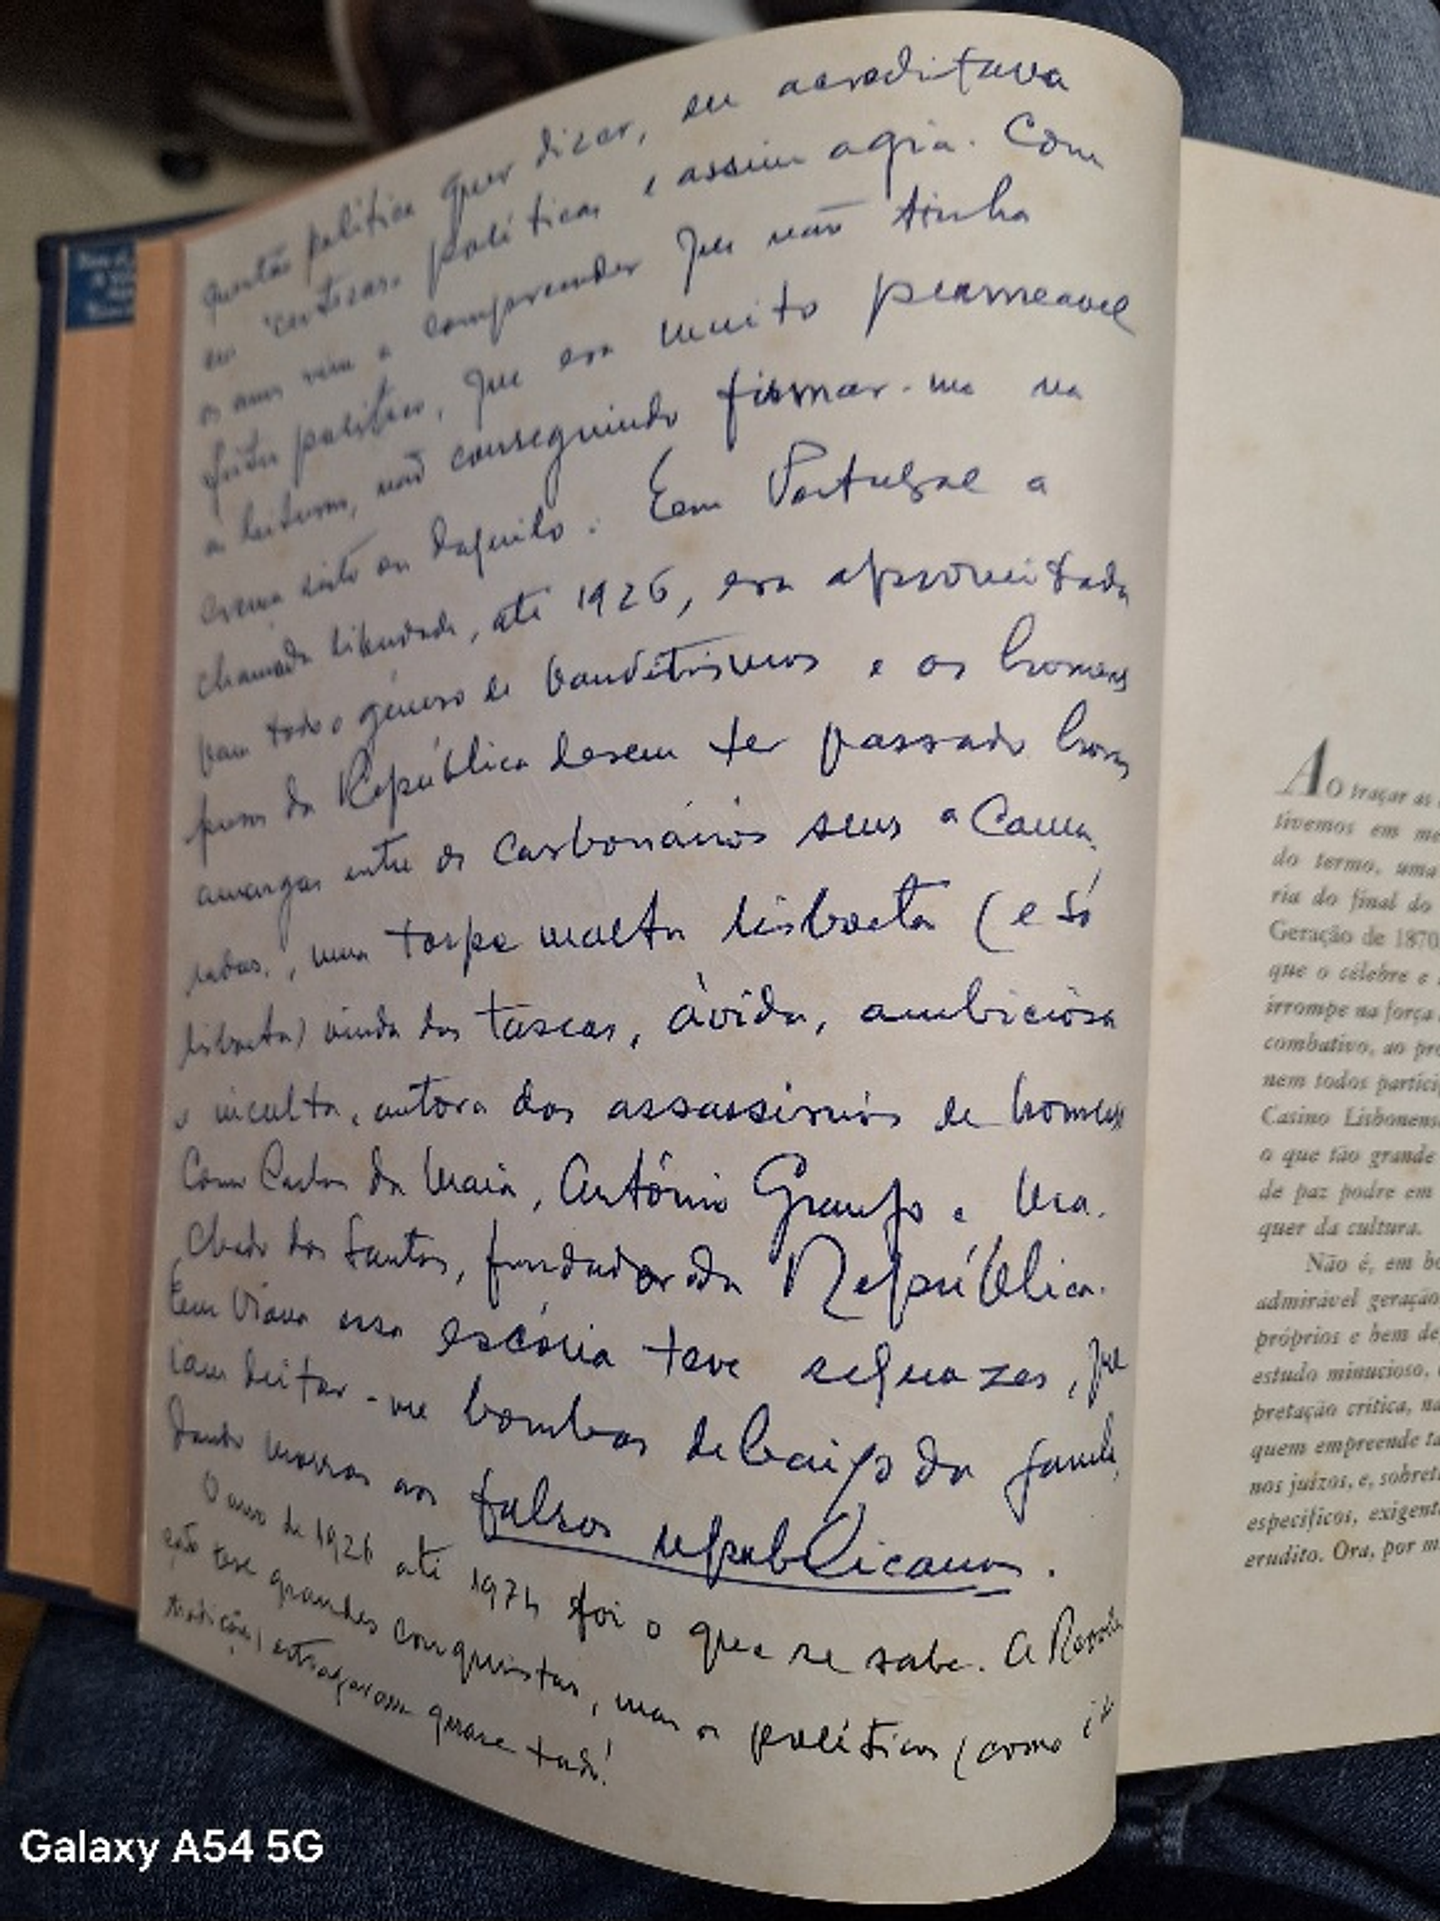 questão política quer dizer, eu acreditava
em "certezas políticas e assim agia. Com
os anos vim a compreender que não tinha
feitio político, que era muito permeavel
a leituras, não conseguindo firmar-me na
crença disto ou daquilo. Em Portugal a
chamada liberdade, até 1926, era aproveitada
para todo o género de banditismos e os homens
puros da República devem ter passado horas
amargas entre os carbonários seus
uma torpe malta lisboeta (e só
lisboeta) vinda das tascas, ávida, ambiciosa
e inculta, autora dos assassinios de homens
como Carlos da Maia, António Granjo e Ma-
chado dos Santos, fundador da República.
Em Viana essa escória teve sequazes, que
iam deitar-me bombas debaixo da janela,
dando morras aos falsos republicanos.
O ano de 1926 até 1974 foi o que se sabe. A Revolu
ção teve grandes conquistas, mas os políticos (como é
tradição) estragaram quase tudo!
Ao traçar as
tivemos em me
do termo, uma
ria do final do
Geração de 1870
que o célebre e
irrompe na força
combativo, ao pro
nem todos partici
Casino Lisbonens
o que tão grande
de paz podre em
quer da cultura.
Não é, em bo
admirável geração
próprios e bem de
estudo minucioso,
pretação crítica, na
quem empreende ta
nos juízos, e, sobret
específicos, exigent
erudito. Ora, por m
Galaxy A54 5G